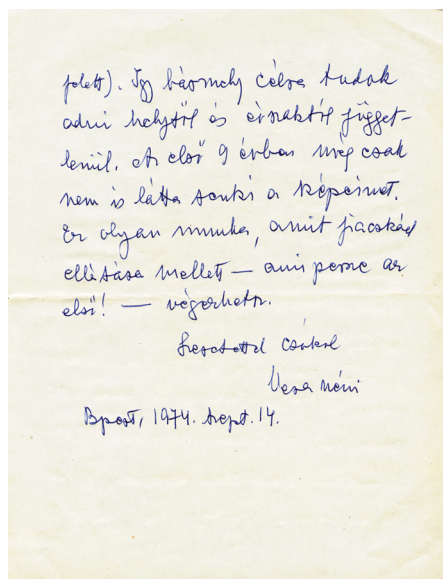 felett). Így bármely célra tudok
adni helytől és évszaktól függet-
lenül. Az első 9 évben még csak
nem is látta senki a képeimet.
Ez olyan munka, amit fiacskád
ellátása mellett — ami persze az
első! — végezhetsz.
Szeretettel csókol
Vera néni
Bpest, 1974. szept. 14.